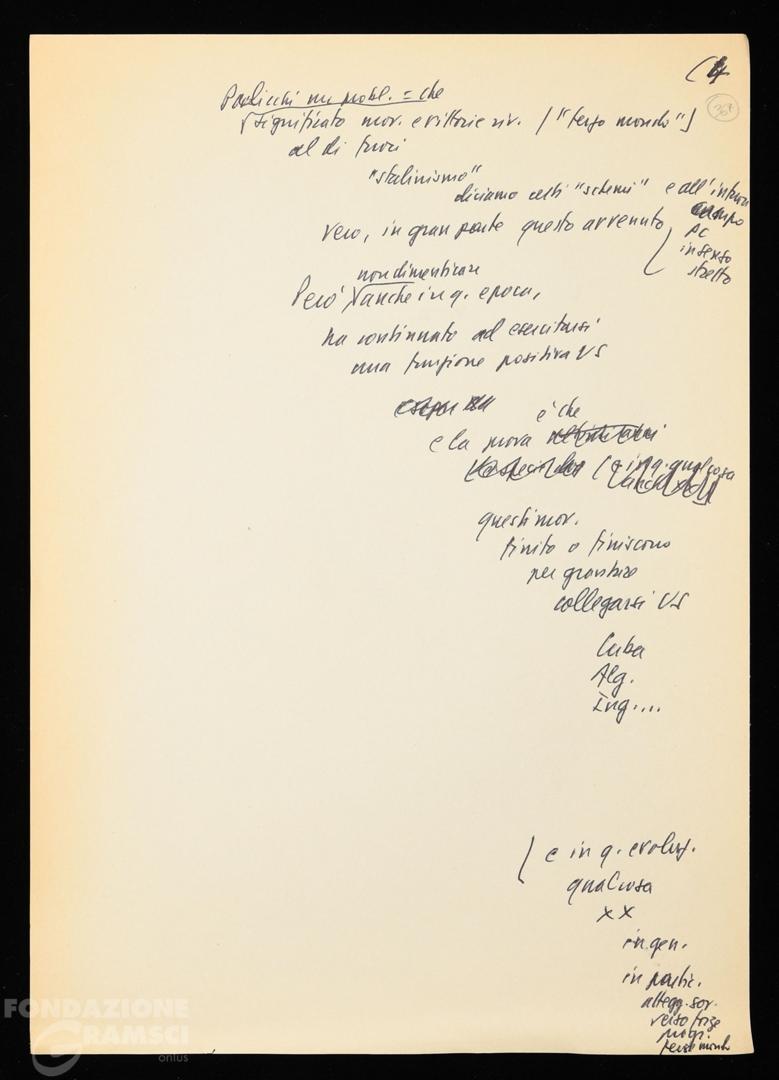 (4
364
Pavlicchi un probl. = che
significato mov. e vittorie riv. / "terzo mondo")
al di fuori
"stalinismo"
diciamo certi "schemi" e all'interno
campo
PC
in senso
stretto
Vero, in gran parte questo avvenuto
non dimenticare
Però anche in q. epoca,
ha continuato ad esercitarsi
una funzione positiva US
è che
e la prova
(e in q. qualcosa
questi mov.
finito o finiscono
per gravitare
collegarsi US
Cuba
Alg.
Ing....
e in q. evoluz.
qualcosa
x x
in gen.
in partic.
attegg. sov.
verso forze
terzo mondo
FONDAZIONE
GRAMSCI
onlus